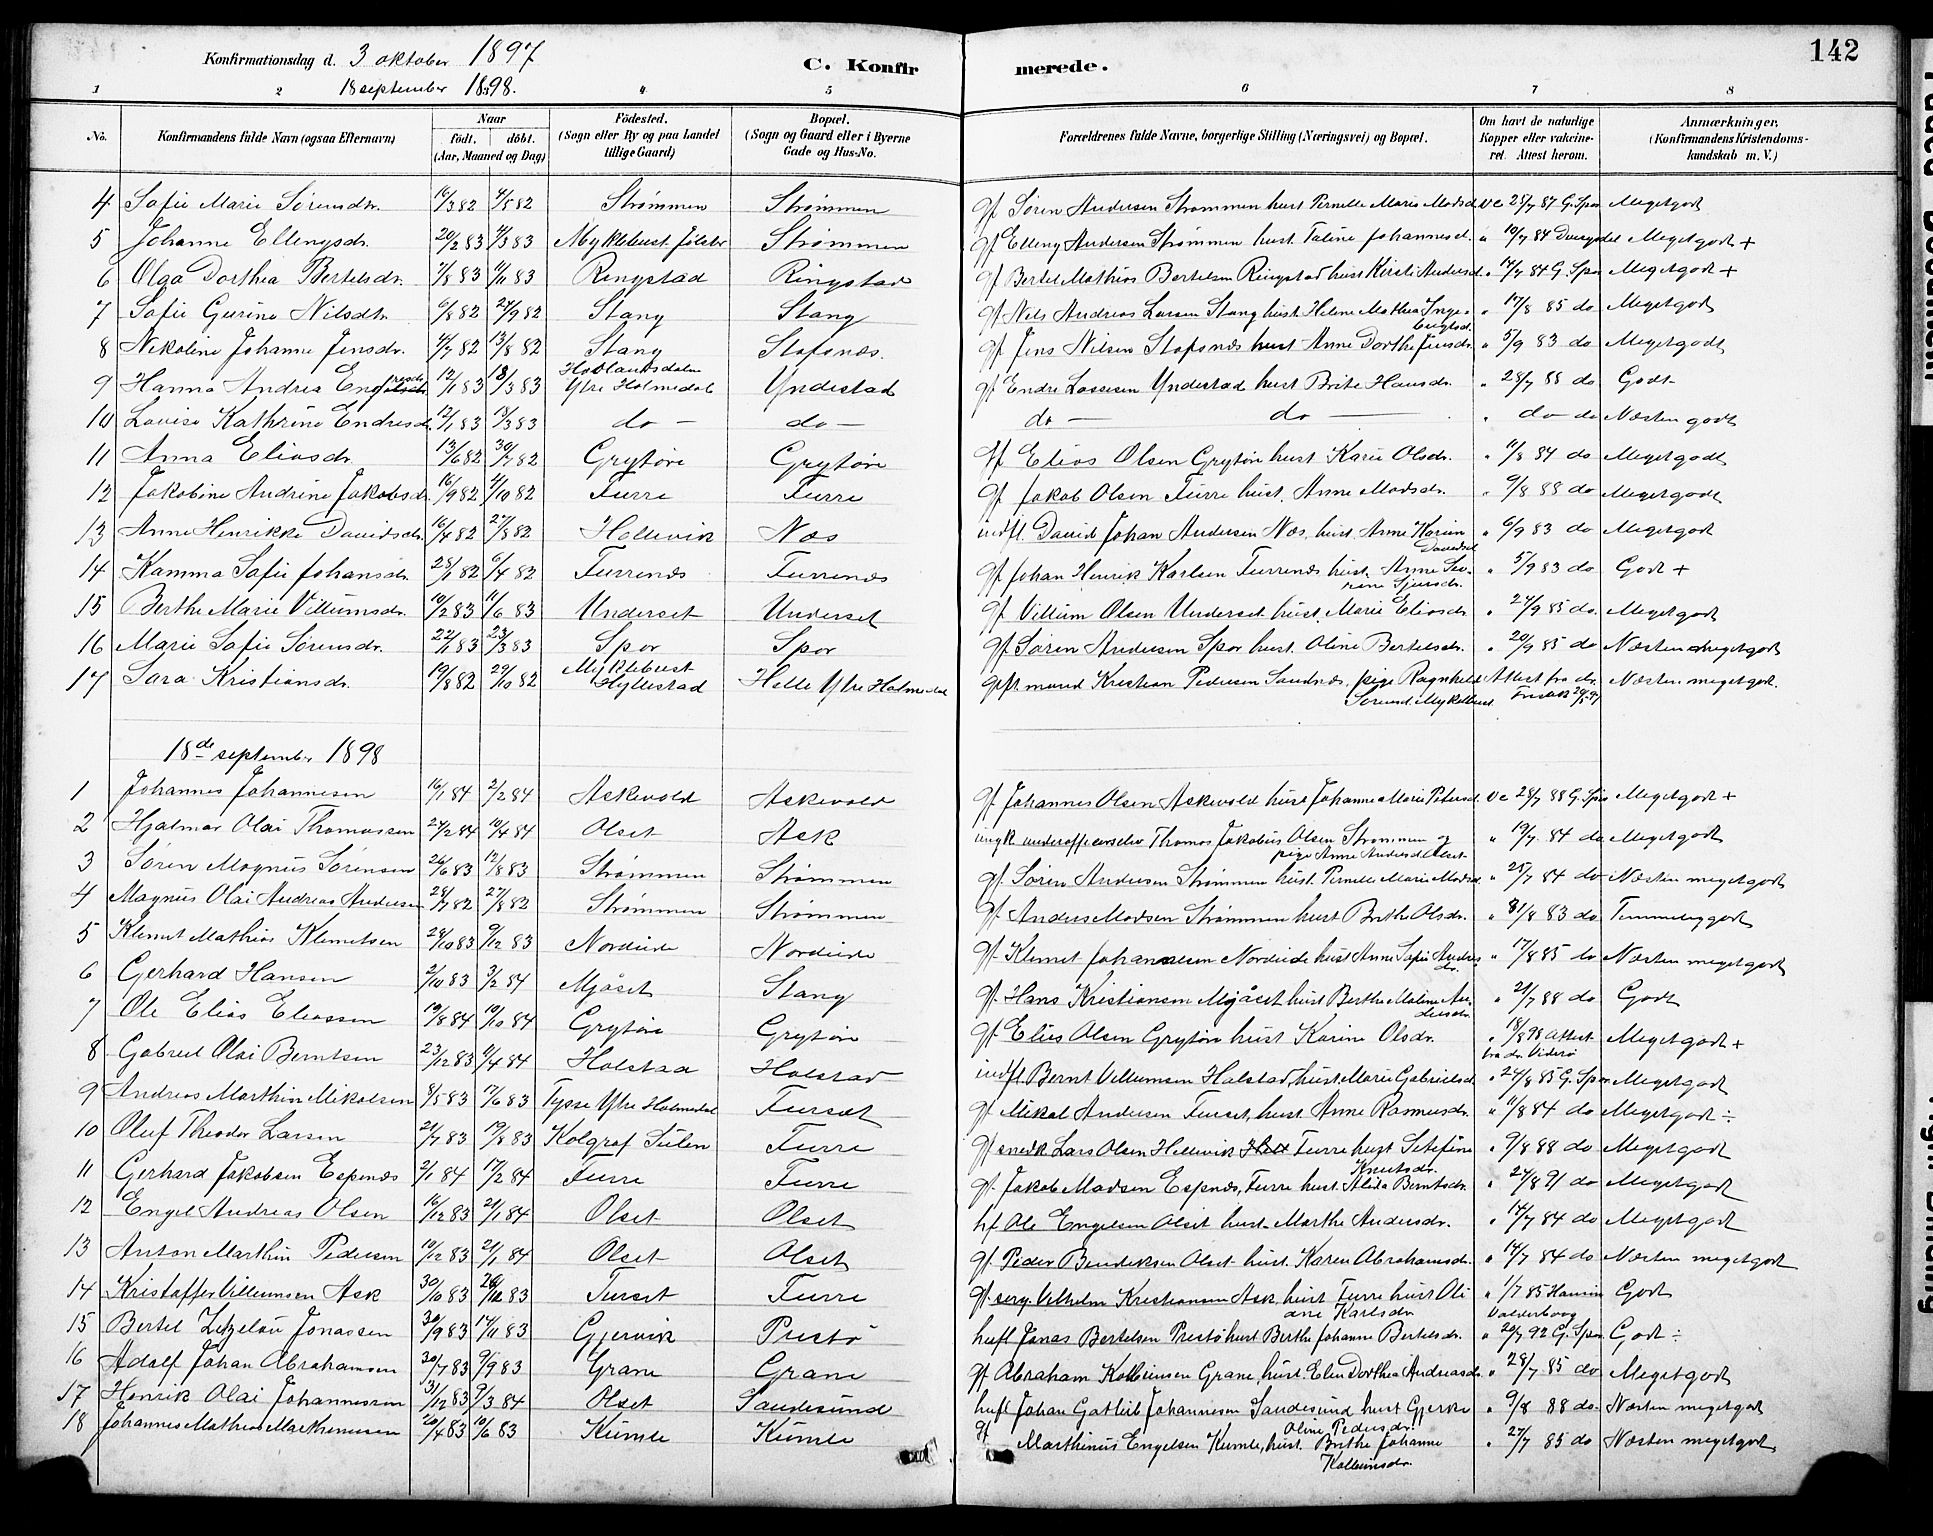 Konfirmationsdag d. 3 oktober 1897
18 september 1898.
C. Konfirmerede.
142
1 2 3 4 5 6 7 8
No. Konfirmandens fulde Navn (ogsaa Efternavn) Naar født. døbt. (Aar, Maaned og Dag) Fødested. (Sogn eller By og paa Landet tillige Gaard) Bopæl. (Sogn og Gaard eller i Byerne Gade og Hus-No. Forældrenes fulde Navne, borgerlige Stilling (Næringsvei) og Bopæl. Om havt de naturlige Kopper eller vakcineret. Attest herom. Anmærkninger. (Konfirmandens Kristendomskundskab m. V.)
4 Sofie Marie Sørensdr. 16/3 82 4/5 82 Strømmen Strømmen gf Søren Andersen Strømmen hust Pernille Marie Madsd. vc 28/7 87 G. Spor Megetgodt
5 Johanne Ellengsdr. 20/2 83 4/3 83 Myklebust Jølster Strømmen gf Elleng Andersen Strømmen hust. Taline Johannesd. " 10/7 84 Meget godt +
6 Olga Dorthea Bertelsdr. 7/8 83 4/11 83 Ringstad Ringstad gf Bertel Mathias Bertelsen Ringstad hust Kirsti Andersd. " 14/7 84 G. Spor Megetgodt +
7 Sofie Gurine Nilsdtr. 6/8 82 24/9 82 Stang Stang gf Nils Andreas Larsen Stang hust. Helene Mathea Ingebrigtsd. " 17/8 85 do Megetgodt
8 Nikoline Johanne Jensdr. 4/7 82 13/8 82 Stang Stafsnæs. gf Jens Nilsen Stafsnæs hust Anne Dorthe Jensdr. " 5/9 83 do Megetgodt
9 Hanna Andrea Endresdr 12/1 83 18/3 83 Hovlandsdalen Ytre Holmedal Yndestad gf Endre Lassesen Yndestad hust Brite Hansdr. " 28/7 88 do Godt
10 Lovise Kathrine Endresd. 12/1 83 18/3 83 do — do — do — do — " do do Næsten godt
11 Anna Eliasdr. 13/6 82 30/7 82 Grytøre Grytøre gf Elias Olsen Grytøre hust Karie Olsdr. " 11/8 84 do Megetgodt
12 Jakobine Andrine Jakobsd. 16/9 82 4/10 82 Furre Furre gf Jakob Olsen Furre hust. Anne Madsdr. " 9/8 88 do Megetgodt
13 Anne Henrikke Davidsdr. 16/4 82 27/8 82 Hellevik Næs indfl. David Johan Andersen Næs, hust. Anne Karine Davidsd " 6/9 83 do Megetgodt
14 Kamma Sofie Johansdr. 23/1 82 6/4 82 Furrenes Furrenes gf Johan Henrik Karlsen Furrenes hust. Anne Severine " 5/9 83 do Godt +
15 Berthe Marie Villumsdr. 10/2 83 11/6 83 Underset Underset gf Villum Olsen Underset hust. Marie Eliasdr " 24/9 85 do. Megetgodt
16 Marie Sofie Sørensdr. 22/1 83 23/3 83 Spor Spor gf Søren Andersen Spor hust. Oline Bertelsdr. " 20/9 85 do Næsten megetgodt
17 Sara Kristiansdr. 19/8 82 22/10 82 Myklebust Hyllestad Helle Ytre Holmedal gift mand Kristian Pedersen Sandnæs, pige Ragnhild Sørensd. Myklebust Attest fra dr. Næsten megetgodt.
18de september 1898
1 Johannes Johannesen 16/1 84 2/2 84 Askevold Askevold gf Johannes Olsen Askevold hust Johanne Marie Petersd. vc 28/7 88 G. Spor Megetgodt +
2 Hjalmar Olai Thomassen 24/2 84 10/4 84 Olset Ask ungk. underofficerselev Thomas Jakobus Olsen Strømmen og pige Anne Andersd Olset " 19/7 84 do Megetgodt
3 Søren Magnus Sørensen 26/6 83 12/8 83 Strømmen Strømmen gf. Søren Andersen Strømmen hust. Pernille Marie Madsd. " 25/7 84 do Næsten megetgodt
4 Magnus Olai Andreas Andersen 28/7 82 27/8 82 Strømmen Strømmen gf. Anders Madsen Strømmen hust Brithe Olsdr. " 8/8 83 do Temmelig godt
5 Klemet Mathias Klemetsen 28/10 83 9/12 83 Nordeide Nordeide gf. Klemet Johannesen Nordeide hust Anne Sofie Andersdr. " 17/8 85 do Næsten megetgodt
6 Gerhard Hansen 2/10 83 3/2 84 Mjåset Stang gf. Hans Kristiansen Mjåset hust Berthe Malene Andersdr. " 21/7 88 do Godt
7 Ole Elias Eliassen 19/8 84 19/10 84 Grytøre Grytøre gf Elias Olsen Grytøre hust Karine Olsdr. " 18/8 98 Attest fra dr. Viderø Megetgodt +
8 Gabriel Olai Berntsen 23/12 83 4/4 84 Halstad Halstad indfl Bernt Villumsen Halstad, hust Marie Gabrielsd. " 24/8 85 G. Spor Megetgodt
9 Andreas Marthin Mikalsen 8/5 83 17/6 83 Tysse Ytre Holmedal Furset gf Mikal Andersen Furset, hust Anne Rasmusdr. " 11/8 84 do Megetgodt ÷
10 Oluf Theodor Larsen 21/7 83 19/8 83 Kolgrof Sulen Furre gf snedk Lars Olsen Hellevik Furre hust Setefine Knutsdr. " 9/8 88 do Megetgodt
11 Gerhard Jakobsen Espenæs 2/1 84 17/2 84 Furre Furre gf. Jakob Madsen Espenæs, Furre hust. Alida Berntsdr. " 24/8 91 do Megetgodt
12 Engel Andreas Olsen 16/12 83 21/1 84 Olset Olset hf Ole Engelsen Olset hust. Marthe Andersdr. " 14/7 84 do Megetgodt
13 Anton Marthin Pedersen 10/12 83 21/1 84 Olset Olset gf. Peder Bendiksen Olset hust. Karen Abrahamsdr. " 14/7 84 do Næsten megetgodt
14 Kristoffer Villumsen Ask 30/10 83 26/12 83 Furset Furre gf serg. Vilhelm Kristiansen Ask, hust Furre hust Oliane Karlsdr " 1/7 85 Godt
15 Bertel Jonassen 30/9 83 14/11 83 Gjervik Prestø husfl Jonas Bertelsen Prestø hust Berthe Johanne Bertelsdr. " 20/7 92 G. Spor Godt ÷
16 Adolf Johan Abrahamsen 30/7 83 9/9 83 Grane Grane gf Abraham Kolbeinsen Grane, hust. Elen Dorthea Andreasdr " 28/7 85 do Megetgodt
17 Henrik Olai Johannessen 31/12 83 9/3 84 Olset Sandesund husfl Johan Gatleib Johannesen Sandesund hust Gjerke Oline Pedersdr. " 9/8 88 do. Næsten megetgodt
18 Johannes Mathias Marthinusen 20/4 83 10/6 83 Kumle Kumle gf Marthinus Engelsen Kumle, hust. Brithe Johanne Kolbeinsdr. " 27/7 85 do Næsten megetgodt